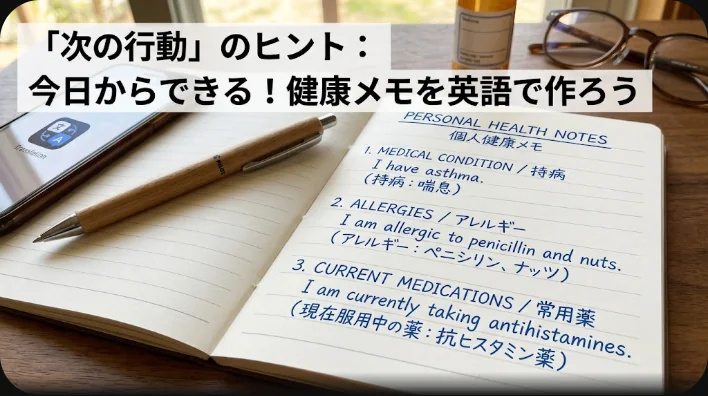 「次の行動」のヒント：
今日からできる！健康メモを英語で作ろう
Translation
PERSONAL HEALTH NOTES
個人健康メモ
1. MEDICAL CONDITION / 持病
I have asthma.
(持病：喘息)
2. ALLERGIES / アレルギー
I am allergic to penicillin and nuts.
(アレルギー：ペニシリン、ナッツ)
3. CURRENT MEDICATIONS / 常用薬
I am currently taking antihistamines.
(現在服用中の薬：抗ヒスタミン薬)